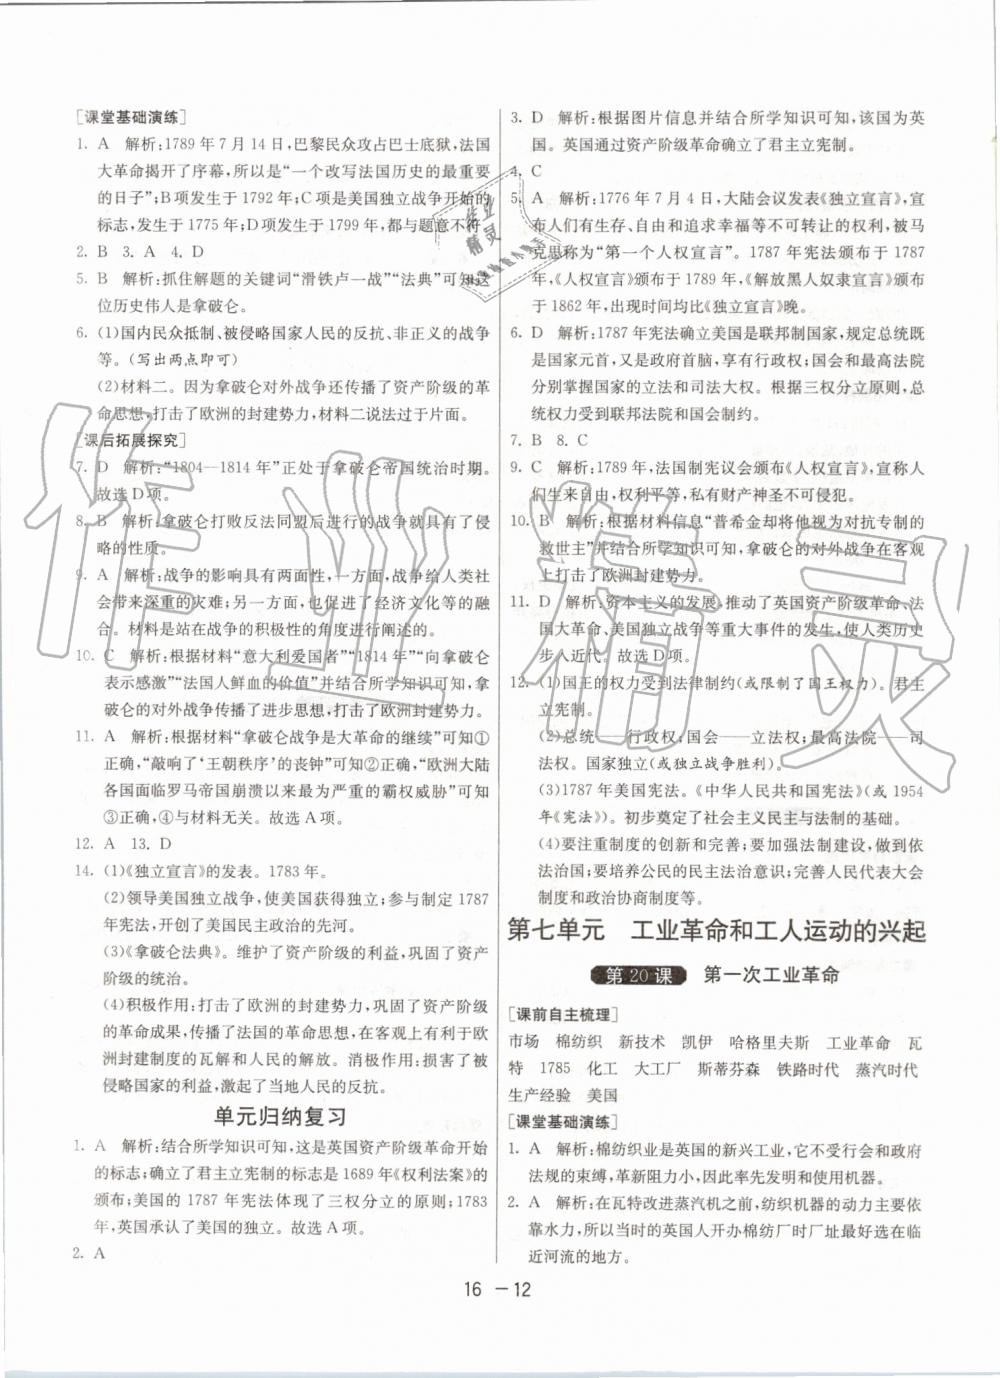 [课堂基础演练]
1. A 解析:1789 年 7 月 14 日,巴黎民众攻占巴士底狱,法国
大革命揭开了序幕,所以是“一个改写法国历史的最重要
的日子”;B项发生于 1792 年;C项是美国独立战争开始的
标志,发生于 1775 年;D项发生于 1799 年,都与题意不符。
2. B 3. A 4. D
5. B 解析:抓住解题的关键词“滑铁卢一战”“法典”可知这
位历史伟人是拿破仑。
6. (1)国内民众抵制、被侵略国家人民的反抗、非正义的战争
等。(写出两点即可)
(2)材料二。因为拿破仑对外战争还传播了资产阶级的革
命思想,打击了欧洲的封建势力,材料二说法过于片面。
[课后拓展探究]
7. D 解析:“1804—1814 年”正处于拿破仑帝国统治时期。
故选D项。
8. B 解析:拿破仑打败反法同盟后进行的战争就具有了侵
略的性质。
9. A 解析:战争的影响具有两面性,一方面,战争给人类社
会带来深重的灾难;另一方面,也促进了经济文化等的融
合。材料是站在战争的积极性的角度进行阐述的。
10. C 解析:根据材料“意大利爱国者”“1814 年”“向拿破仑
表示感激”“法国人鲜血的价值”并结合所学知识可知,拿
破仑的对外战争传播了进步思想,打击了欧洲封建势力。
11. A 解析:根据材料“拿破仑战争是大革命的继续”可知①
正确,“敲响了‘王朝秩序’的丧钟”可知②正确,“欧洲大陆
各国面临罗马帝国崩溃以来最为严重的霸权威胁”可知
③正确,④与材料无关。故选A项。
12. A 13. D
14. (1)《独立宣言》的发表。1783 年。
(2)领导美国独立战争,使美国获得独立;参与制定 1787
年宪法,开创了美国民主政治的先河。
(3)《拿破仑法典》。维护了资产阶级利益,巩固了资产阶
级的统治。
(4)积极作用:打击了欧洲的封建势力,巩固了资产阶级
的革命成果,传播了法国的革命思想,在客观上有利于欧
洲封建制度的瓦解和人民的解放。消极作用:损害了被
侵略国家的利益,激起了当地人民的反抗。
单元归纳复习
1. A 解析:结合所学知识可知,这是英国资产阶级革命开始
的标志;确立了君主立宪制的标志是 1689 年《权利法案》的
颁布;美国的 1787 年宪法体现了三权分立的原则;1783
年,英国承认了美国的独立。故选A项。
2. A
3. D 解析:根据图片信息并结合所学知识可知,该国为英
国。英国通过资产阶级革命确立了君主立宪制。
4. C
5. A 解析:1776 年 7 月 4 日,大陆会议发表《独立宣言》,宣
布人们有生存、自由和追求幸福等不可转让的权利,被马
克思称为“第一个人权宣言”。1787 年宪法颁布于 1787
年,《人权宣言》颁布于 1789 年,《解放黑人奴隶宣言》颁布
于 1862 年,出现时间均比《独立宣言》晚。
6. D 解析:1787年宪法确立美国是联邦制国家,规定总统既
是国家元首,又是政府首脑,享有行政权;国会和最高法院
分别掌握国家的立法和司法大权。根据三权分立原则,总
统权力受到联邦法院和国会制约。
7. B 8. C
9. C 解析:1789年,法国制宪议会颁布《人权宣言》,宣称人
们生来自由,权利平等,私有财产神圣不可侵犯。
10. B 解析:根据材料信息“普希金却将他视为对抗专制的
救世主”并结合所学知识可知,拿破仑的对外战争在客观
上打击了欧洲封建势力。
11. D 解析:资本主义的发展,推动了英国资产阶级革命、法
国大革命、美国独立战争等重大事件的发生,使人类历史
步入近代。故选D项。
12. (1)国王的权力受到法律制约(或限制了国王权力)。君主
立宪制。
(2)总统——行政权;国会——立法权;最高法院——司
法权。国家独立(或独立战争胜利)。
(3)1787 年美国宪法。《中华人民共和国宪法》(或 1954
年《宪法》)。初步奠定了社会主义民主与法制的基础。
(4)要注重制度的创新和完善;要加强法制建设,做到依
法治国;要培养公民的民主法治意识;完善人民代表大会
制度和政治协商制度等。
第七单元 工业革命和工人运动的兴起
第 20 课 第一次工业革命
[课前自主梳理]
市场 棉纺织 新技术 凯伊 哈格里夫斯 工业革命 瓦
特 1785 化工 大工厂 斯蒂芬森 铁路时代 蒸汽时代
生产经验 美国
[课堂基础演练]
1. A 解析:棉纺织业是英国的新兴工业,它不受行会和政府
法规的束缚,革新阻力小,因此率先发明和使用机器。
2. A 解析:在瓦特改进蒸汽机之前,纺织机器的动力主要依
靠水力,所以当时的英国人开办棉纺厂时厂址最好选在临
近河流的地方。
16 －12
作业精灵
作业
精灵